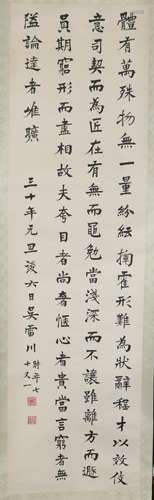 體有萬殊物無一量紛紜揮霍形難為狀辭程才以效伎
意司契而為匠在有無而黽勉當淺深而不讓雖離方而遯
員期窮形而盡相故夫夸目者尚奢愜心者貴當言窮者無
隘論達者唯曠 三十年元旦後六日吳雷川時年七十又一